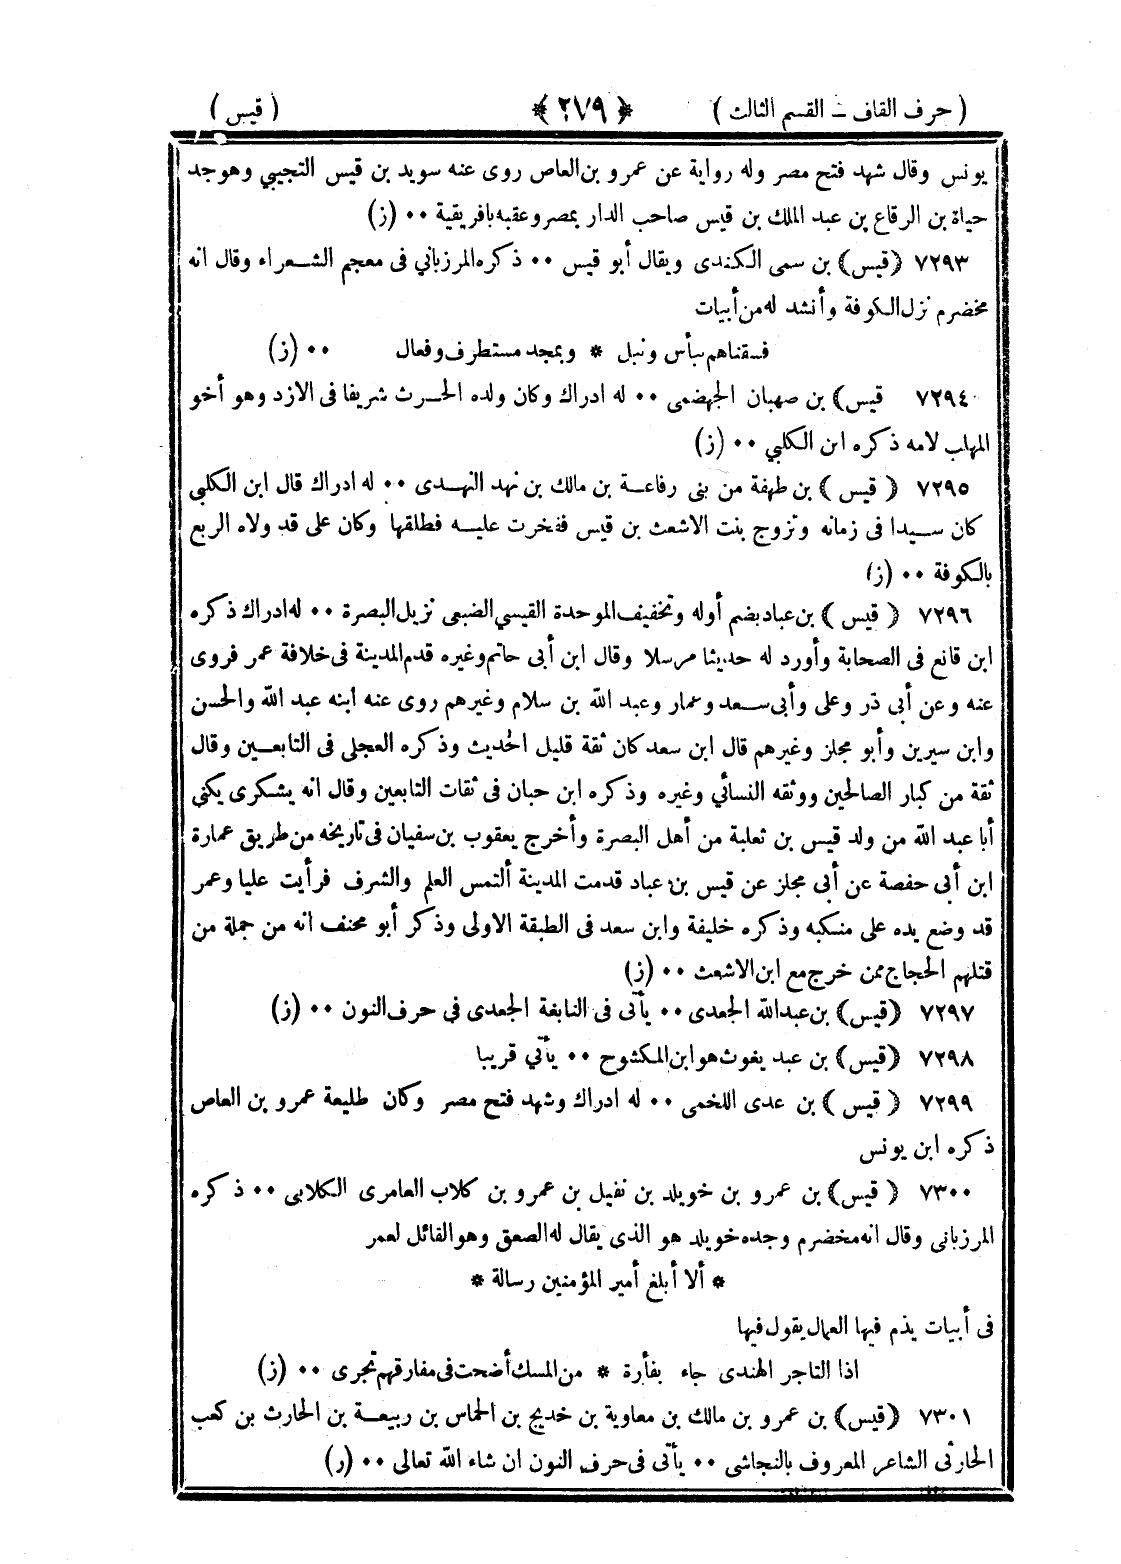 ( حرف القاف ـ القسم الثالث ) ﴿ ٢٧٩ ﴾ ( قيس )
يونس وقال شهد فتح مصر وله رواية عن عمرو بن العاص روى عنه سويد بن قيس التجيبي وهو جد
حياة بن الرقاع بن عبد الملك بن قيس صاحب الدار بمصر وعقبه بافريقية ٠٠ (ز)
٧٢٩٣ ﴿قيس﴾ بن سمى الكندى ويقال أبو قيس ٠٠ ذكره المرزباني فى معجم الشعراء وقال انه
مخضرم نزل الكوفة وأنشد له من أبيات
فسقناهم ببأس ونبل * وبمجد مستطرف وفعال ٠٠ (ز)
٧٢٩٤ قيس﴾ بن صهبان الجهضمى ٠٠ له ادراك وكان ولده الحرث شريفا فى الازد وهو أخو
المهاب لامه ذكره ابن الكلبي ٠٠ (ز)
٧٢٩٥ ﴿ قيس ﴾ بن طهفة من بنى رفاعة بن مالك بن نهد النهدى ٠٠ له ادراك قال ابن الكلبى
كان سيدا فى زمانه وتزوج بنت الاشعث بن قيس ففخرت عليه فطلقها وكان على قد ولاه الربع
بالكوفة ٠٠ (ز)
٧٢٩٦ ﴿ قيس ﴾ بن عباد بضم أوله وتخفيف الموحدة القيسي الضبعى نزيل البصرة ٠٠ له ادراك ذكره
ابن قانع فى الصحابة وأورد له حديثا مرسلا وقال ابن أبى حاتم وغيره قدم المدينة فى خلافة عمر فروى
عنه وعن أبى ذر وعلى وأبى سعد وعمار وعبد الله بن سلام وغيرهم روى عنه ابنه عبد الله والحسن
وابن سيرين وأبو مجلز وغيرهم قال ابن سعد كان ثقة قليل الحديث وذكره العجلى فى التابعين وقال
ثقة من كبار الصالحين ووثقه النسائي وغيره وذكره ابن حبان فى ثقات التابعين وقال انه يشكرى يكنى
أبا عبد الله من ولد قيس بن ثعلبة من أهل البصرة وأخرج يعقوب بن سفيان فى تاريخه من طريق عمارة
ابن أبى حفصة عن أبي مجلز عن قيس بن عباد قدمت المدينة ألتمس العلم والشرف فرأيت عليا وعمر
قد وضع يده على منكبه وذكره خليفة وابن سعد فى الطبقة الاولى وذكر أبو مخنف انه من جملة من
قتلهم الحجاج ممن خرج مع ابن الاشعث ٠٠ (ز)
٧٢٩٧ ﴿قيس﴾ بن عبد الله الجعدى ٠٠ يأتى فى النابغة الجعدى فى حرف النون ٠٠ (ز)
٧٢٩٨ ﴿قيس﴾ بن عبد يغوث هو ابن المكشوح ٠٠ يأتي قريبا
٧٢٩٩ ﴿ قيس ﴾ بن عدى اللخمى ٠٠ له ادراك وشهد فتح مصر وكان طليعة عمرو بن العاص
ذكره ابن يونس
٧٣٠٠ ﴿ قيس﴾ بن عمرو بن خويلد بن نفيل بن عمرو بن كلاب العامرى الكلابى ٠٠ ذكره
المرزبانى وقال انه مخضرم وجده خويلد هو الذي يقال له الصعق وهو القائل لعمر
* ألا أبلغ أمير المؤمنين رسالة *
فى أبيات يذم فيها العمال يقول فيها
اذا التاجر الهندى جاء بفأرة * من المسك أضحت فى مفارقهم تجرى ٠٠ (ز)
٧٣٠١ ﴿قيس﴾ بن عمرو بن مالك بن معاوية بن خديج بن الحماس بن ربيعة بن الحارث بن كعب
الحارثى الشاعر المعروف بالنجاشى ٠٠ يأتى فى حرف النون ان شاء الله تعالى ٠٠ (ر)